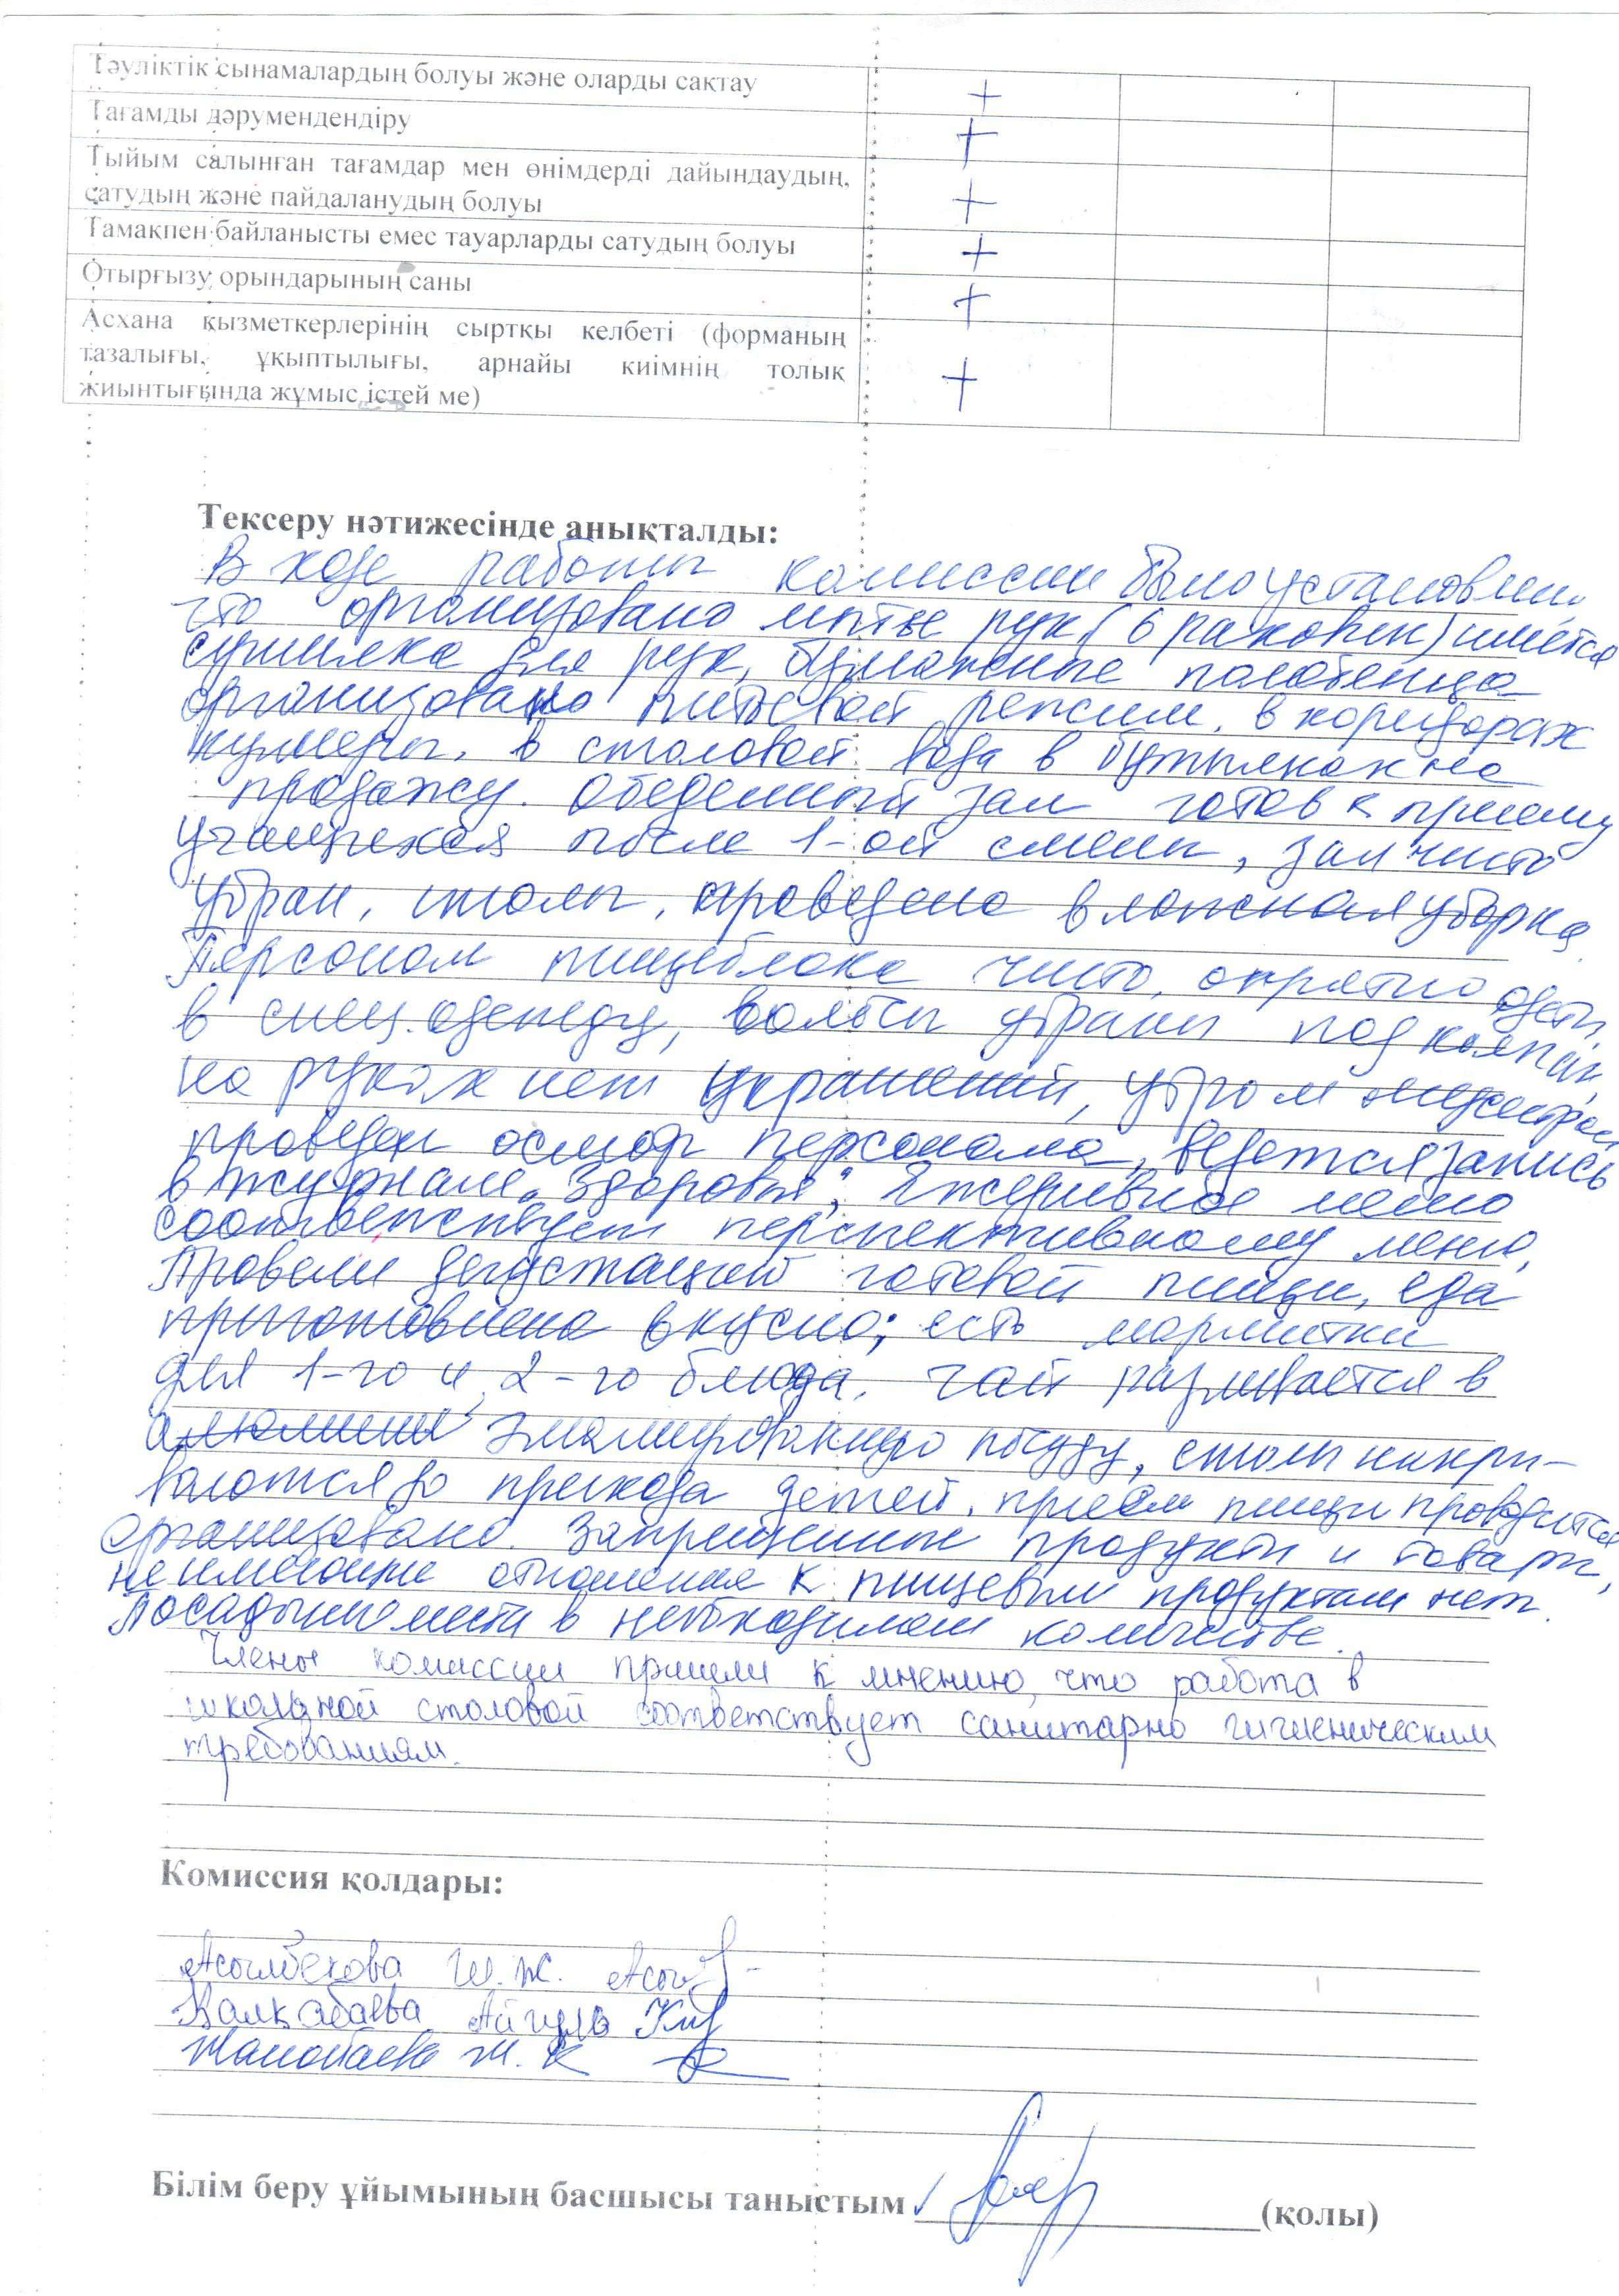 Тәуліктік сынамалардың болуы және оларды сақтау +
Тағамды дәрумендендіру +
Тыйым салынған тағамдар мен өнімдерді дайындаудың,
сатудың және пайдаланудың болуы +
Тамақпен байланысты емес тауарларды сатудың болуы +
Отырғызу орындарының саны +
Асхана қызметкерлерінің сыртқы келбеті (форманың
тазалығы, ұқыптылығы, арнайы киімнің толық
жиынтығында жұмыс істей ме) +
Тексеру нәтижесінде анықталды:
В ходе работы комиссии было установлено
что организовано мытье рук (6 раковин) имеется
сушилка для рук, бумажные полотенца
организовано питьевой режим, в коридорах
кулеры, в столовой вода в бутылках на
продажу. Обеденный зал готов к приему
учащихся после 1-ой смены, зал чисто
убран, столы, проведена влажная уборка.
Персонал пищеблока чисто, опрятно одеты
в спец.одежду, волосы убраны под колпак,
на руках нет украшений, утром медсестрой
проведен осмотр персонала, ведется запись
в журнале "Здоровья"; Ежедневное меню
соответствует перспективному меню,
Провели дегустацию готовой пищи, еда
приготовлена вкусно; есть мармитки
для 1-го и 2-го блюда. Чай разливается в
эмалированную посуду, столы накры-
ваются до прихода детей, прием пищи проводится
организовано. Запрещенные продукты и товары,
не имеющие отношения к пищевым продуктам нет.
Посадочные места в необходимом количестве.
Члены комиссии пришли к мнению, что работа в
школьной столовой соответствует санитарно гигиеническим
требованиям.
Комиссия қолдары:
Асылбекова Ш.Ж.
Калкабаева Айгуль
Жанобаева Ж.К
Білім беру ұйымының басшысы таныстым (қолы)